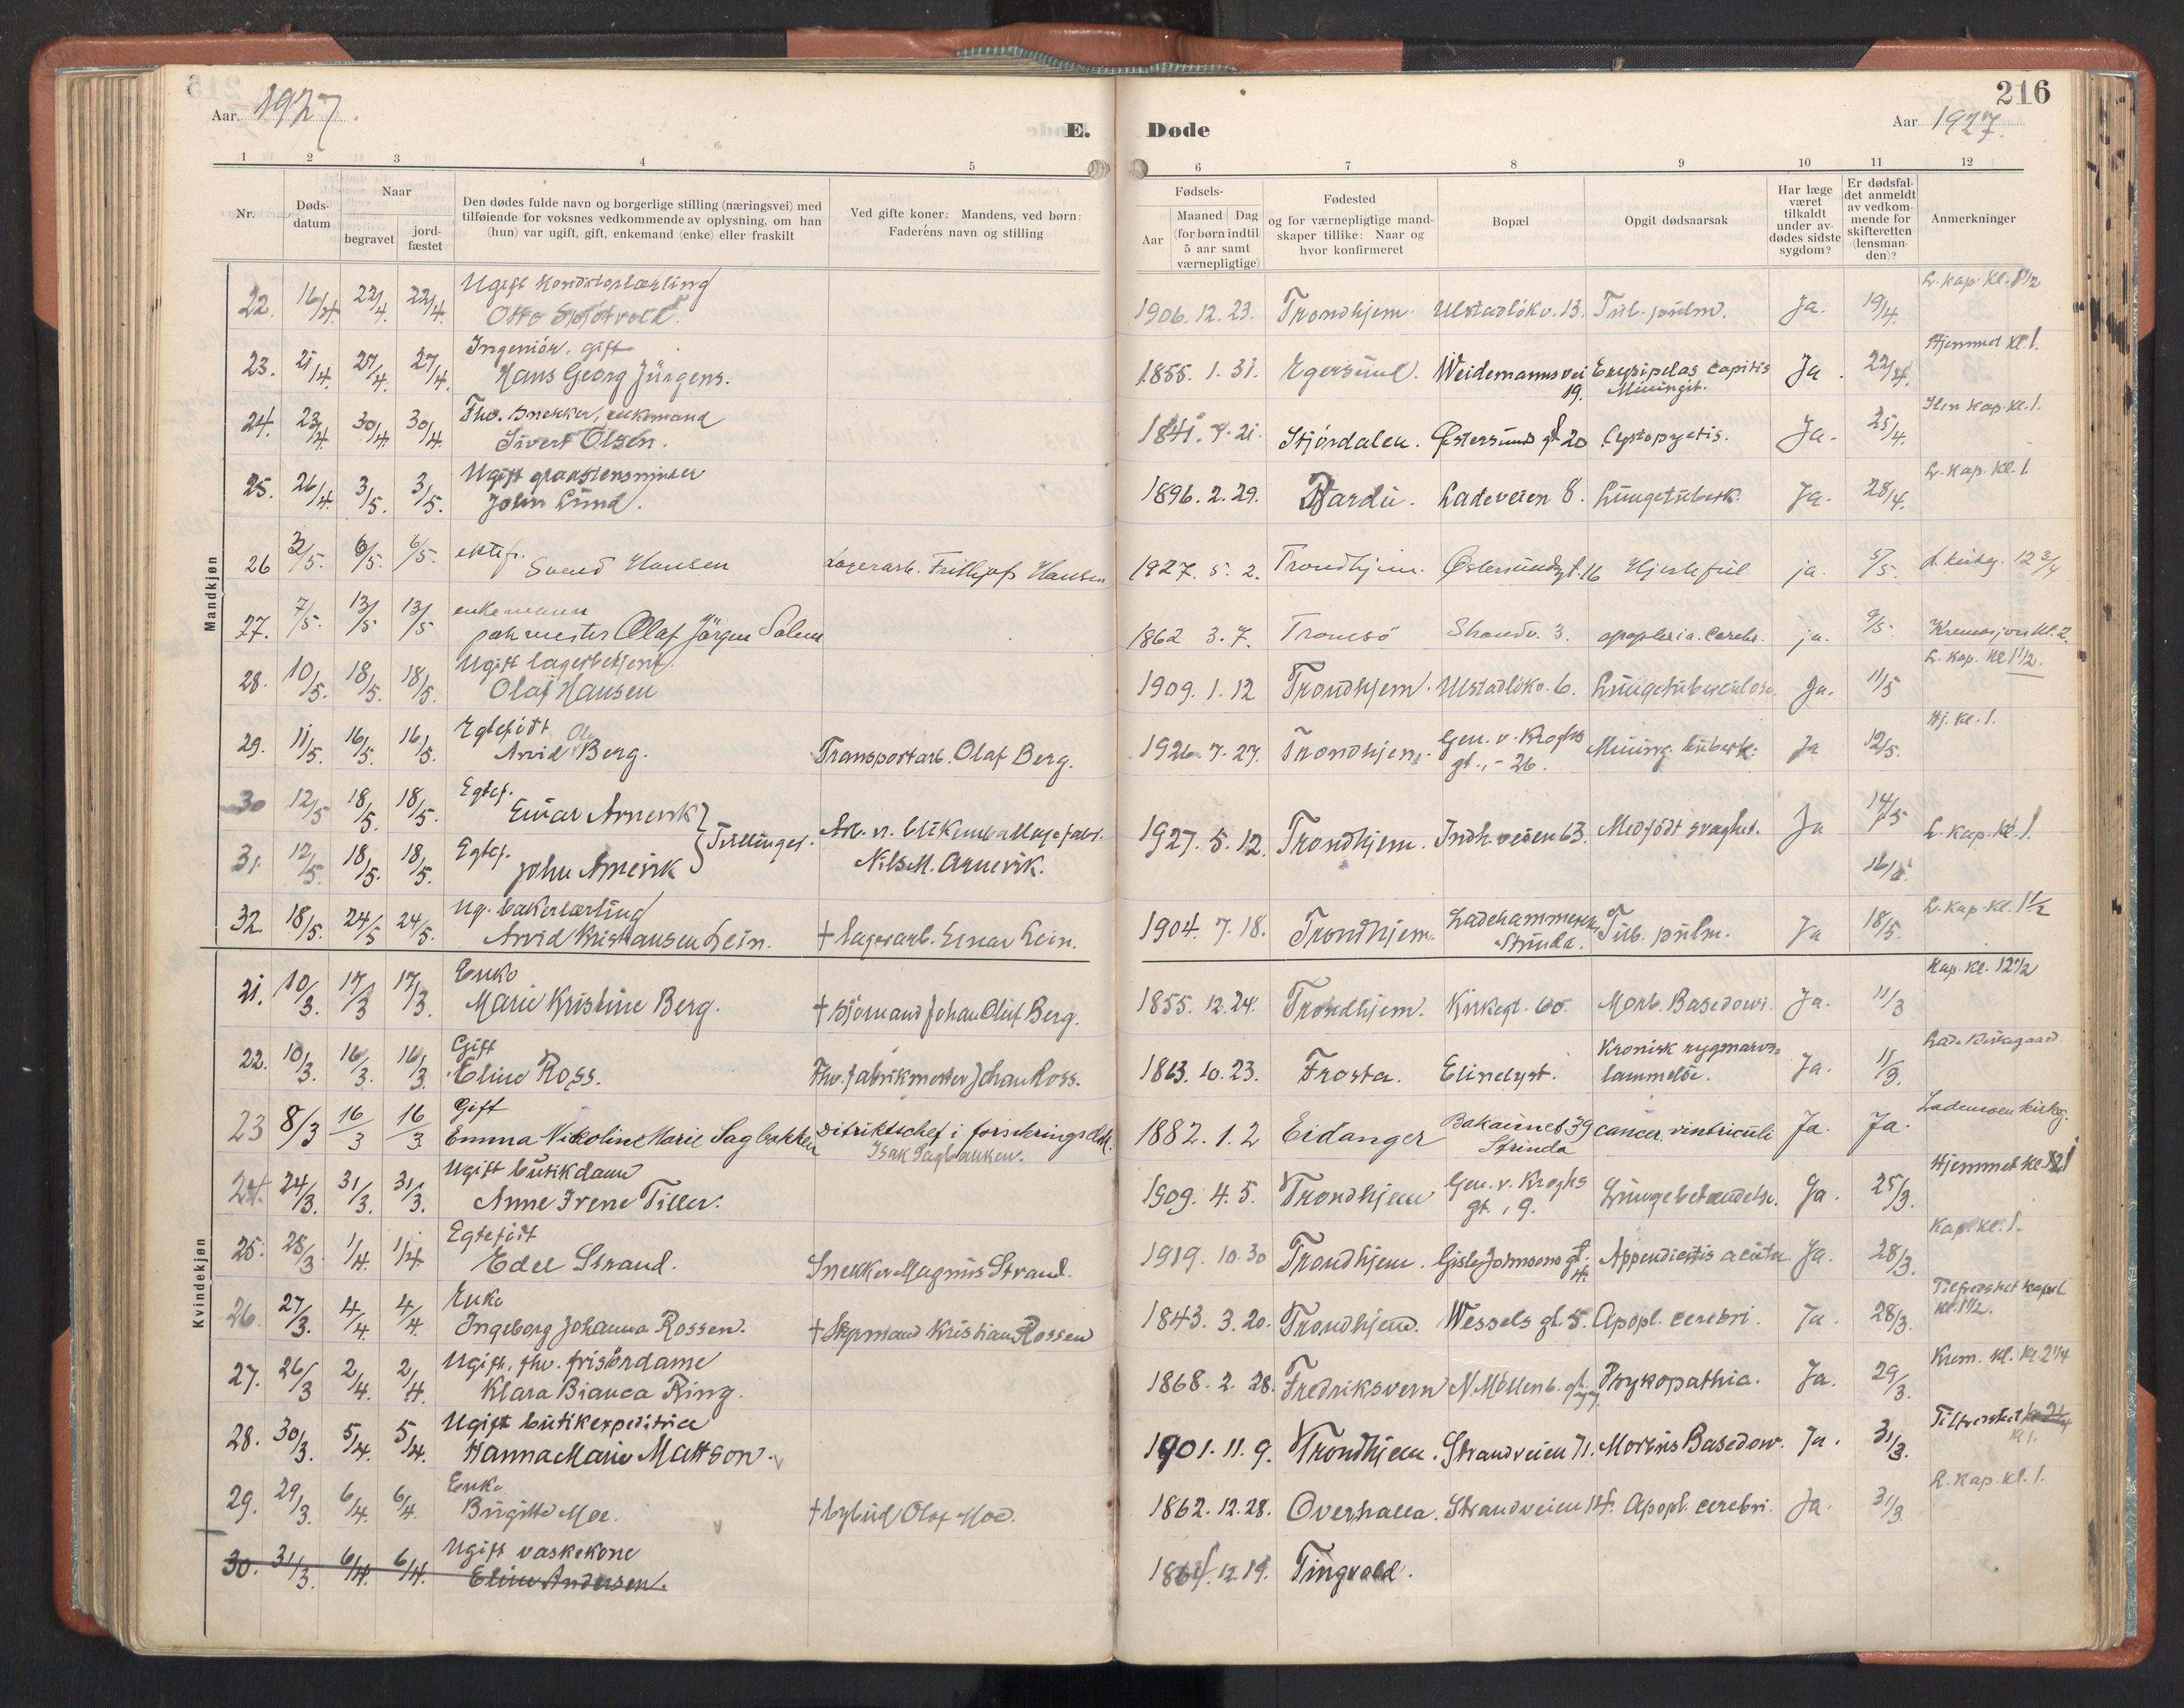 216
Aar 1927.
E. Døde
Aar 1927.
1 2 3 4 5 6 7 8 9 10 11 12
Nr.
Døds-
datum
Naar
begravet
jord-
fæstet
Den dødes fulde navn og borgerlige stilling (næringsvei) med
tilføiende for voksnes vedkommende av oplysning, om han
(hun) var ugift, gift, enkemand (enke) eller fraskilt
Ved gifte koner: Mandens, ved børn:
Faderens navn og stilling
Fødsels-
Aar
Maaned Dag
(for børn indtil
5 aar samt
værnepligtige)
Fødested
og for værnepligtige mand-
skaper tillike: Naar og
hvor konfirmeret
Bopæl
Opgit dødsaarsak
Har læge
været
tilkaldt
under av-
dødes sidste
sygdom?
Er dødsfal-
det anmeldt
av vedkom-
mende for
skifteretten
(lensman-
den)?
Anmerkninger
Mandkjøn
Ugift Konditorlærling L. Kap. Kl. 1 1/2
22. 16/4. 22/4. 22/4. Otto 1906. 12. 23. Trondhjem. Ulstadløkv. 13. Tub. pulm. Ja. 19/4.
Ingeniør. gift Hjemmet kl. 1.
23. 21/4. 27/4. 27/4. Hans Georg Jürgens. 1855. 1. 31. Egersund. Weidemannsvei 19. Erysipelas capitis Ja. 22/4.
Fhv. snekker, enkemand Ilen Kap. kl. 1.
24. 23/4. 30/4. 30/4. Sivert Olsen. 1841. 7. 21. Stjørdalen. Østersunds gt 20 Cystopyetis. Ja. 25/4.
Ugift graastensminer L. Kap. Kl. 1.
25. 26/4. 3/5. 3/5. John Lund. 1896. 2. 29. Bardu. Ladeveien 8. Lungetuberk. Ja. 28/4.
ektef.
26 2/5. 6/5. 6/5. Svend Hansen Lagerarb. Frithjof Hansen 1927. 5. 2. Trondhjem. Østersundsgt. 16 Hjertefeil ja. 5/5. 12 3/4
enkemann
27. 7/5. 13/5 13/5 Olaf Jørgen Solem 1862 3. 7. Tromsø Strandv. 3. apoplexia. Cerebr. ja. 9/5. Kremasjon kl. 2.
Ugift lagerbetjent. L. Kap. Kl 1 1/2.
28. 10/5. 18/5. 18/5. Olaf Hansen 1909. 1. 12 Trondhjem. Ulstadløkv. 6. Lungetuberculose. Ja. 11/5
Egtefødt Hj. Kl. 1.
29. 11/5. 16/5. 16/5. Arvid Berg. Transportarb. Olaf Berg. 1926. 7. 27. Trondhjem. Gen. v. Kroghs gt. 26. Mening. tuberk. Ja 12/5.
Egtef.
30 12/5 18/5. 18/5. Einar Arnevik Tvillinger. Arb. v. blikemballagefabr. 1927. 5. 12. Trondhjem. Indh.veien 63. Medfødt svaghet. Ja 14/5 L. Kap. Kl. 1.
Egtef.
31. 12/5. 18/5. 18/5. John Arnevik Nils M. Arnevik. 16/5.
Ug. bakerlærling L. Kap. Kl. 1 1/2
32. 18/5. 24/5 24/5. Arvid Kristiansen Lein. † lagerarb. Einar Lein. 1904. 7. 18. Trondhjem. Ladehammeren Strinda. Tub. pulm. Ja 18/5.
Kvindekjøn
Enke Kap. Kl. 12 1/2
21. 10/3. 17/3 17/3. Marie Kristine Berg. † Sjømand Johan Oluf Berg. 1855. 12. 24. Trondhjem. Kirkegt. 60. Morb. Basedowi. Ja. 11/3
Gift Lade Kirkegaard
22. 10/3. 16/3. 16/3. Eline Ross. Fhv. fabrikmester Johan Ross. 1863. 10. 23. Frosta. Elinelyst. Kronisk rygmarvs- lammelse. Ja. 11/3.
Gift Lademoen kirkeg.
23 8/3 16/3 16/3 Emma Nikoline Marie Sagbakken Distriktschef i Isak Sagbakken. 1882. 1. 2 Eidanger Bakaunet 39 Strinda cancer. ventriculi Ja. Ja.
Ugift butikdame Hjemmet kl. 1
24. 24/3. 31/3. 31/3. Anne Irene Tiller. 1909. 4. 5. Trondhjem Gen. v. Kroghs gt. 9. Lungebetændelse. Ja. 25/3.
Egtefødt Kap. kl. 1.
25. 28/3. 1/4. 1/4 Edel Strand. Snekker Magnus Strand. 1919. 10. 30 Trondhjem. Gisle Johnsons gt. 4. Appendicitis acuta Ja. 28/3.
Enke Tilfredshet kapel kl. 1 1/2.
26. 27/3. 4/4. 4/4. Ingeborg Johanna Rossen. † Styrmand Kristian Rossen 1843. 3. 20. Trondhjem. Wessels gt. 5. Apopl. cerebri. Ja. 28/3.
Ugift, fhv. frisørdame Krem. kl. 2 1/4
27. 26/3 2/4. 2/4 Klara Bianca Ring. 1868. 2. 28. Fredriksvern N. Møllenb. gt. Psykopathia. Ja. 29/3.
Ugift butikexpeditrice Tilfredshet
28. 30/3. 5/4. 5/4. Hanna Marie Mattson. 1901. 11. 9. Trondhjem. Strandveien 71. Morbus Basedow. Ja. 31/3. kl 1.
Enke. L. Kap. kl. 1.
29. 29/3. 6/4. 6/4. Birgitte Moe. † bybud Olaf Moe. 1862. 12. 28. Overhalla. Strandveien 14. Apopl. cerebri. Ja. 31/3.
Ugift vaskekone
30. 31/3. 6/4. 6/4. Eline Andersen. 1864. 12. 19. Tingvold.